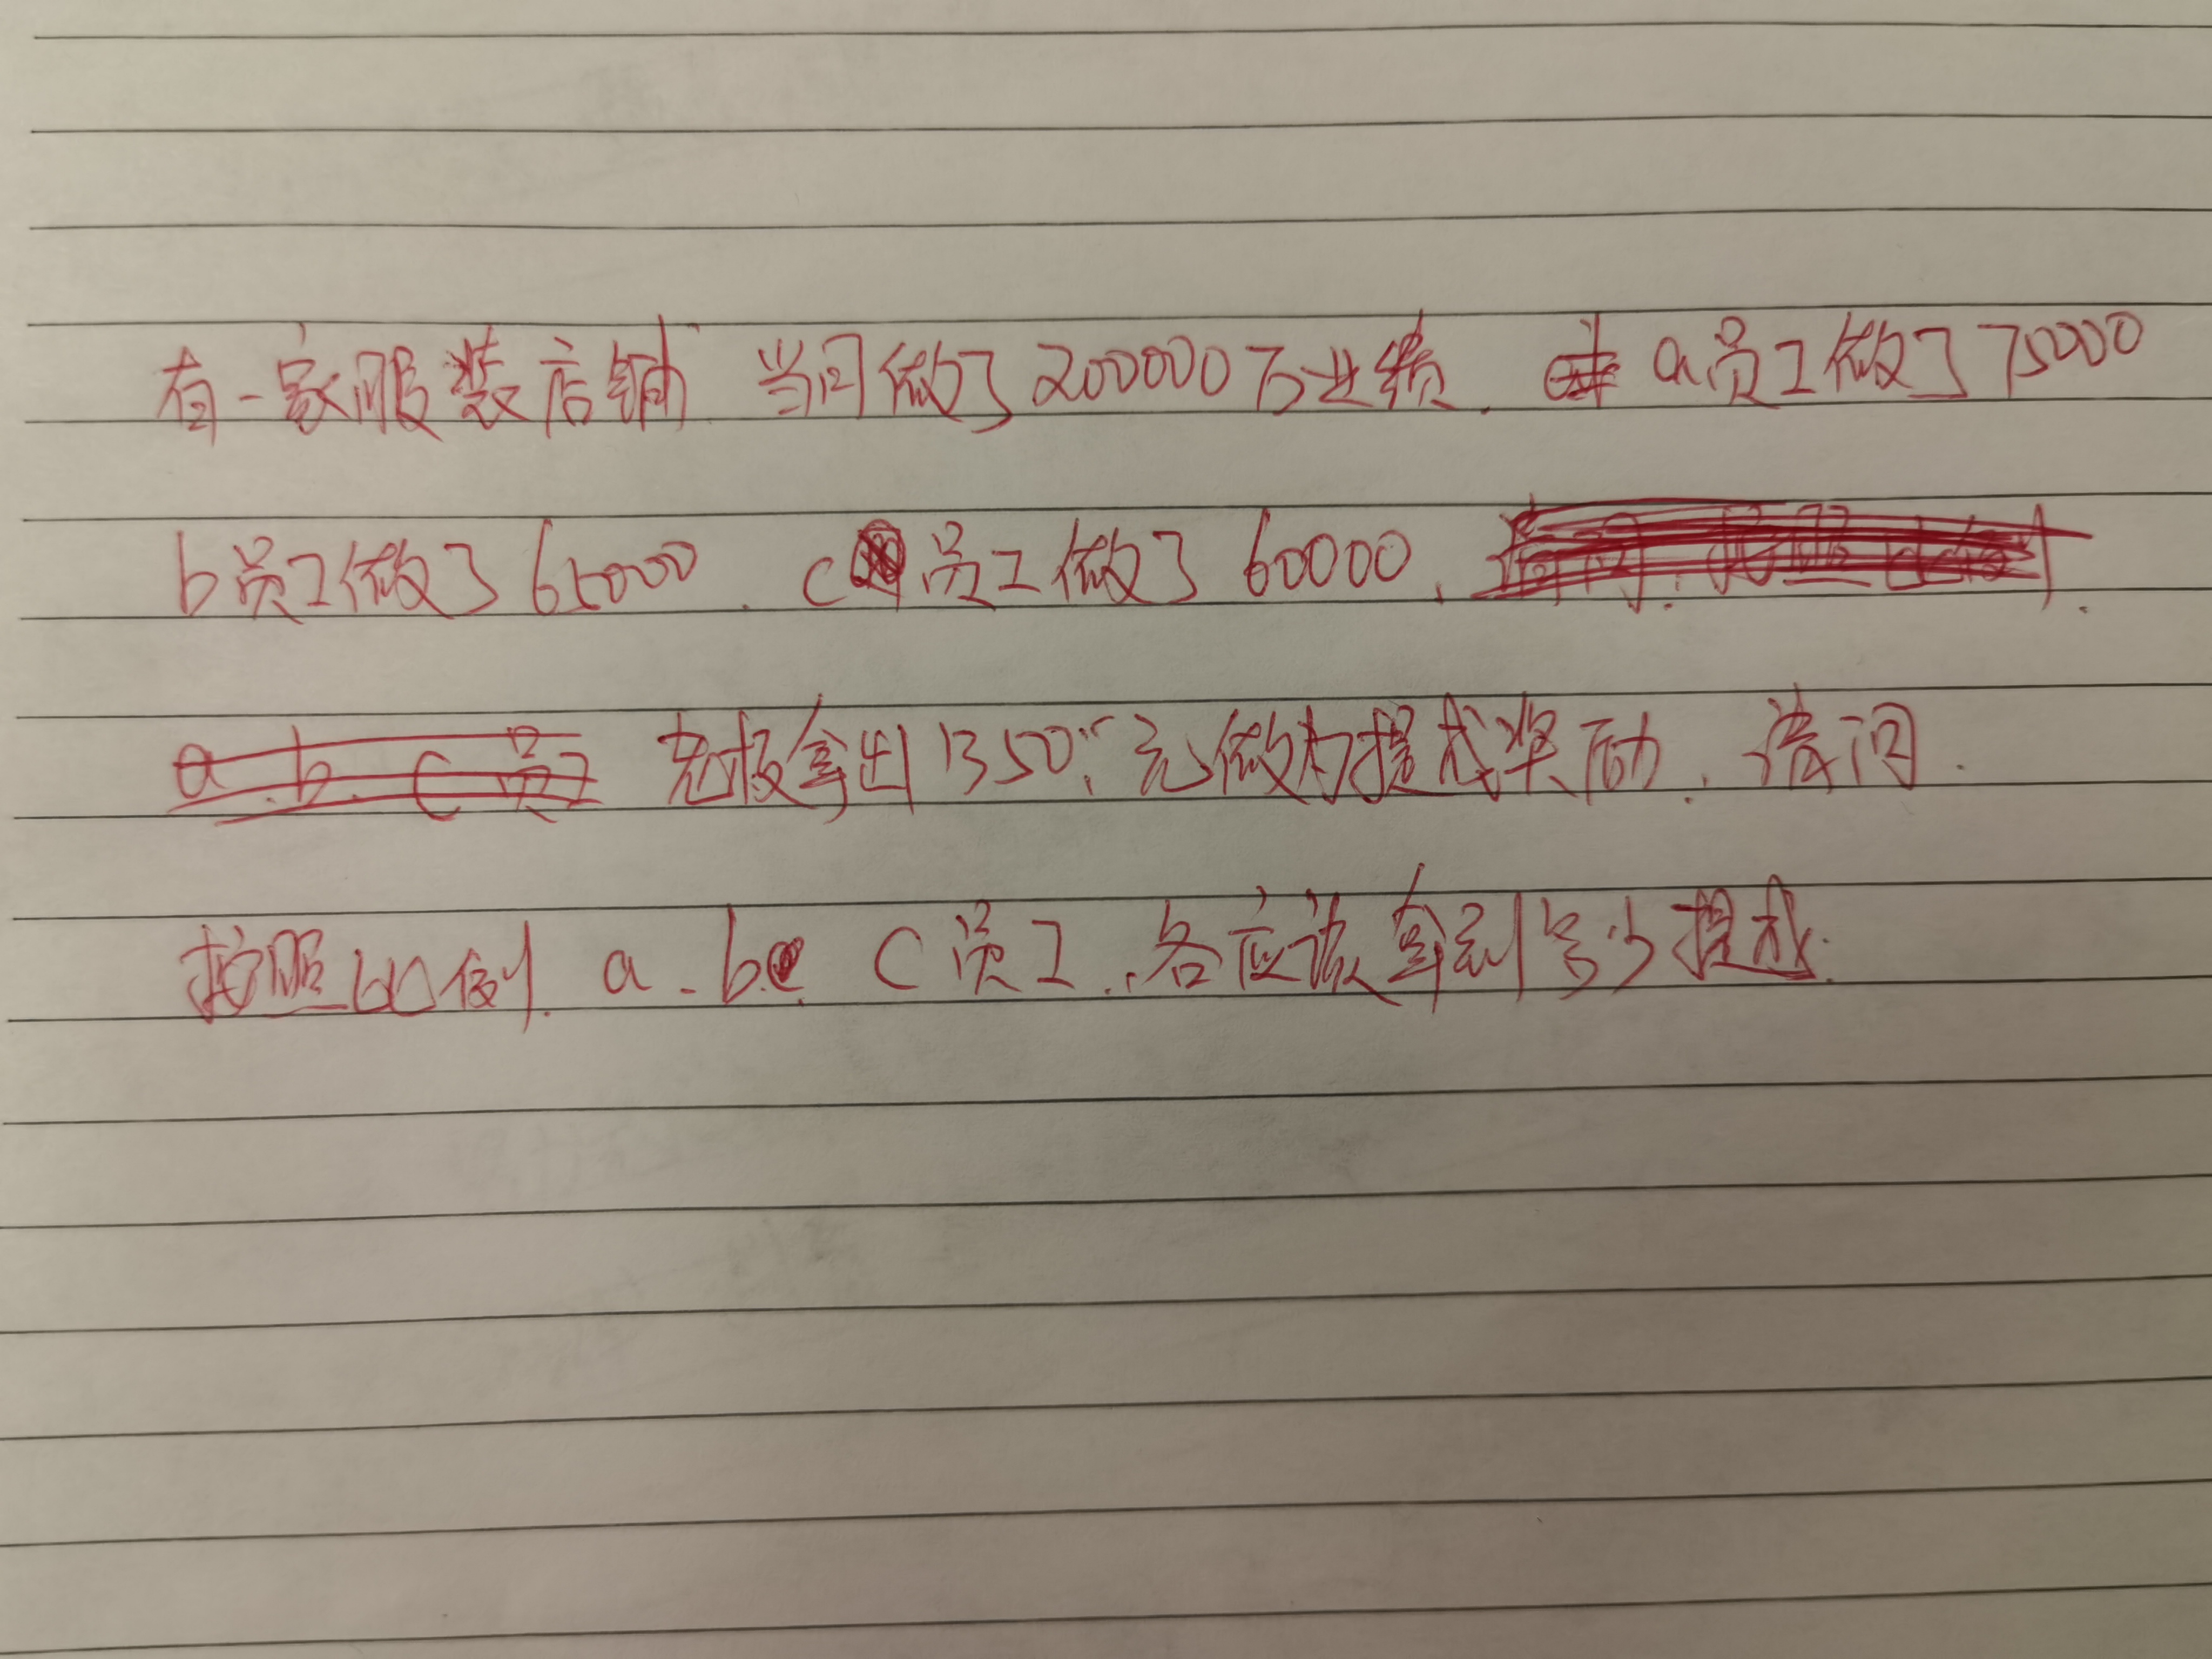 有一家服装店铺 当月做了200000万业绩. a员工做了75000
b员工做了65000. c员工做了60000.
a.b.c员工 老板拿出1350元做为提成奖励.请问.
按照比例.a.b. c员工.各应该拿到多少提成.